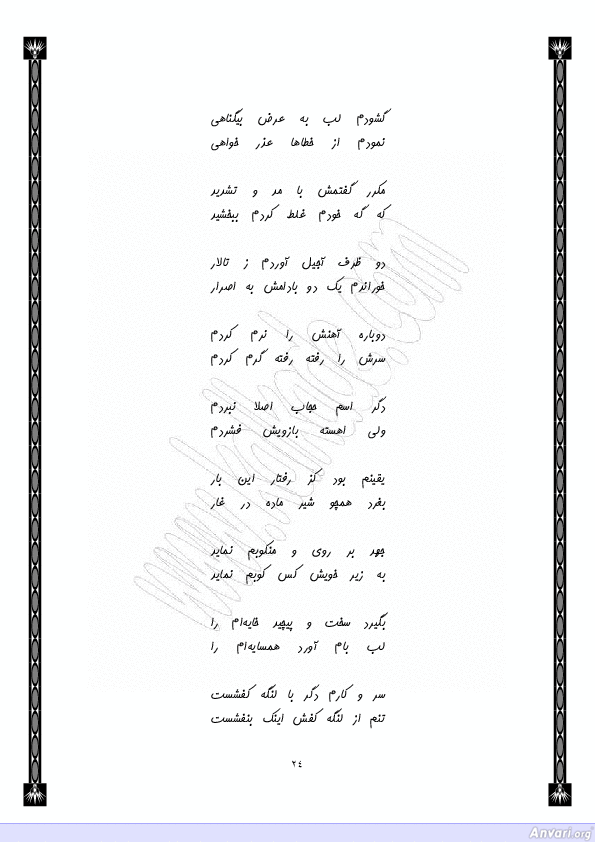 گشودم لب به عرض بیگناهی
نمودم از خطاها عذر خواهی
مکرر گفتمش با مد و تشدید
که گه خودم غلط کردم ببخشید
دو ظرف آجیل آوردم ز تالار
خوراندم یک دو بادامش به اصرار
دوباره آهنش را نرم کردم
سرش را رفته رفته گرم کردم
دگر اسم حجاب اصلا نبردم
ولی اهسته بازویش فشردم
یقینم بود کز رفتار این بار
بغرد همچو شیر ماده در غار
جهد بر روی و منکوبم نماید
به زیر خویش کس کوبم نماید
بگیرد سخت و پیچید خایه‌ام را
لب بام آورد همسایه‌ام را
سر و کارم دگر با لنگه کفشست
تنم از لنگه کفش اینک بنفشست
۲٤
www.ketabkade.com
Anvari.org